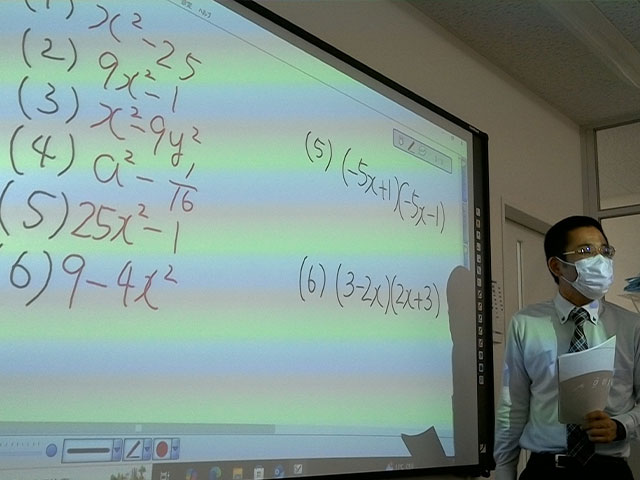 (1) x² - 25
(2) 9x² - 1
(3) x² - 9y²
(4) a² - 1/16
(5) 25x² - 1
(6) 9 - 4x²
(5) (-5x+1)(-5x-1)
(6) (3-2x)(2x+3)